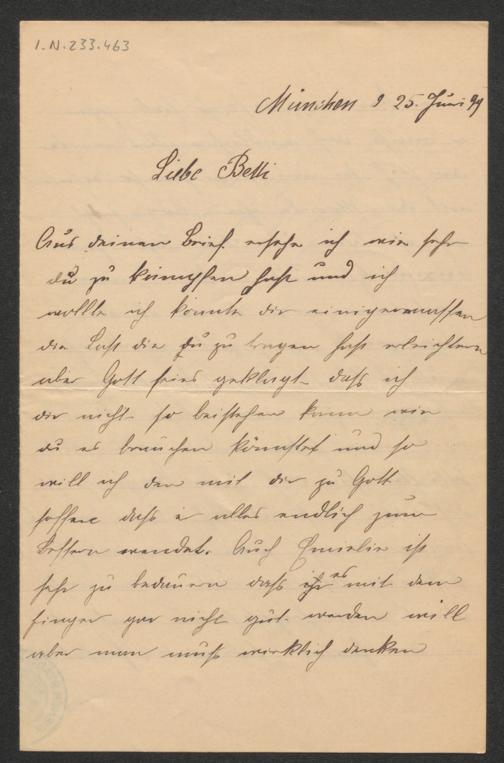 I.N.233.463
München d 25. Juni 99
Liebe Betti
Aus deinem Brief ersehe ich wie sehr
du zu kämpfen hast und ich
wollte ich könnte dir einigermassen
die Last die du zu tragen hast erleichtern
aber Gott seies geklagt dass ich
dir nicht so beistehen kann wie
du es brauchen könntest und so
will ich den mit dir zu Gott
hoffen dass er alles endlich zum
Bessern wendet. Auch Emielie ist
sehr zu bedauern dass ihr es mit dem
finger gar nicht gut werden will
aber man muss wirklich denken